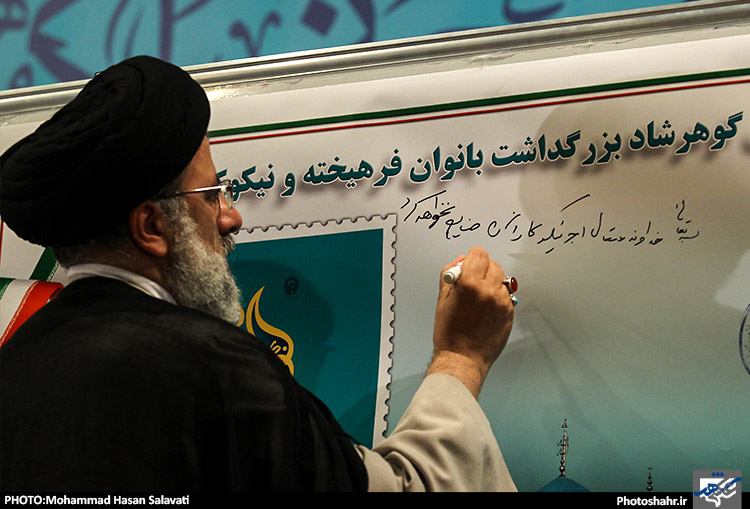 گوهرشاد بزرگداشت بانوان فرهیخته و نیکوک
بسمه تعالی
خداوند متعال اجر نیکوکاران را ضایع نخواهد کرد
PHOTO:Mohammad Hasan Salavati
Photoshahr.ir